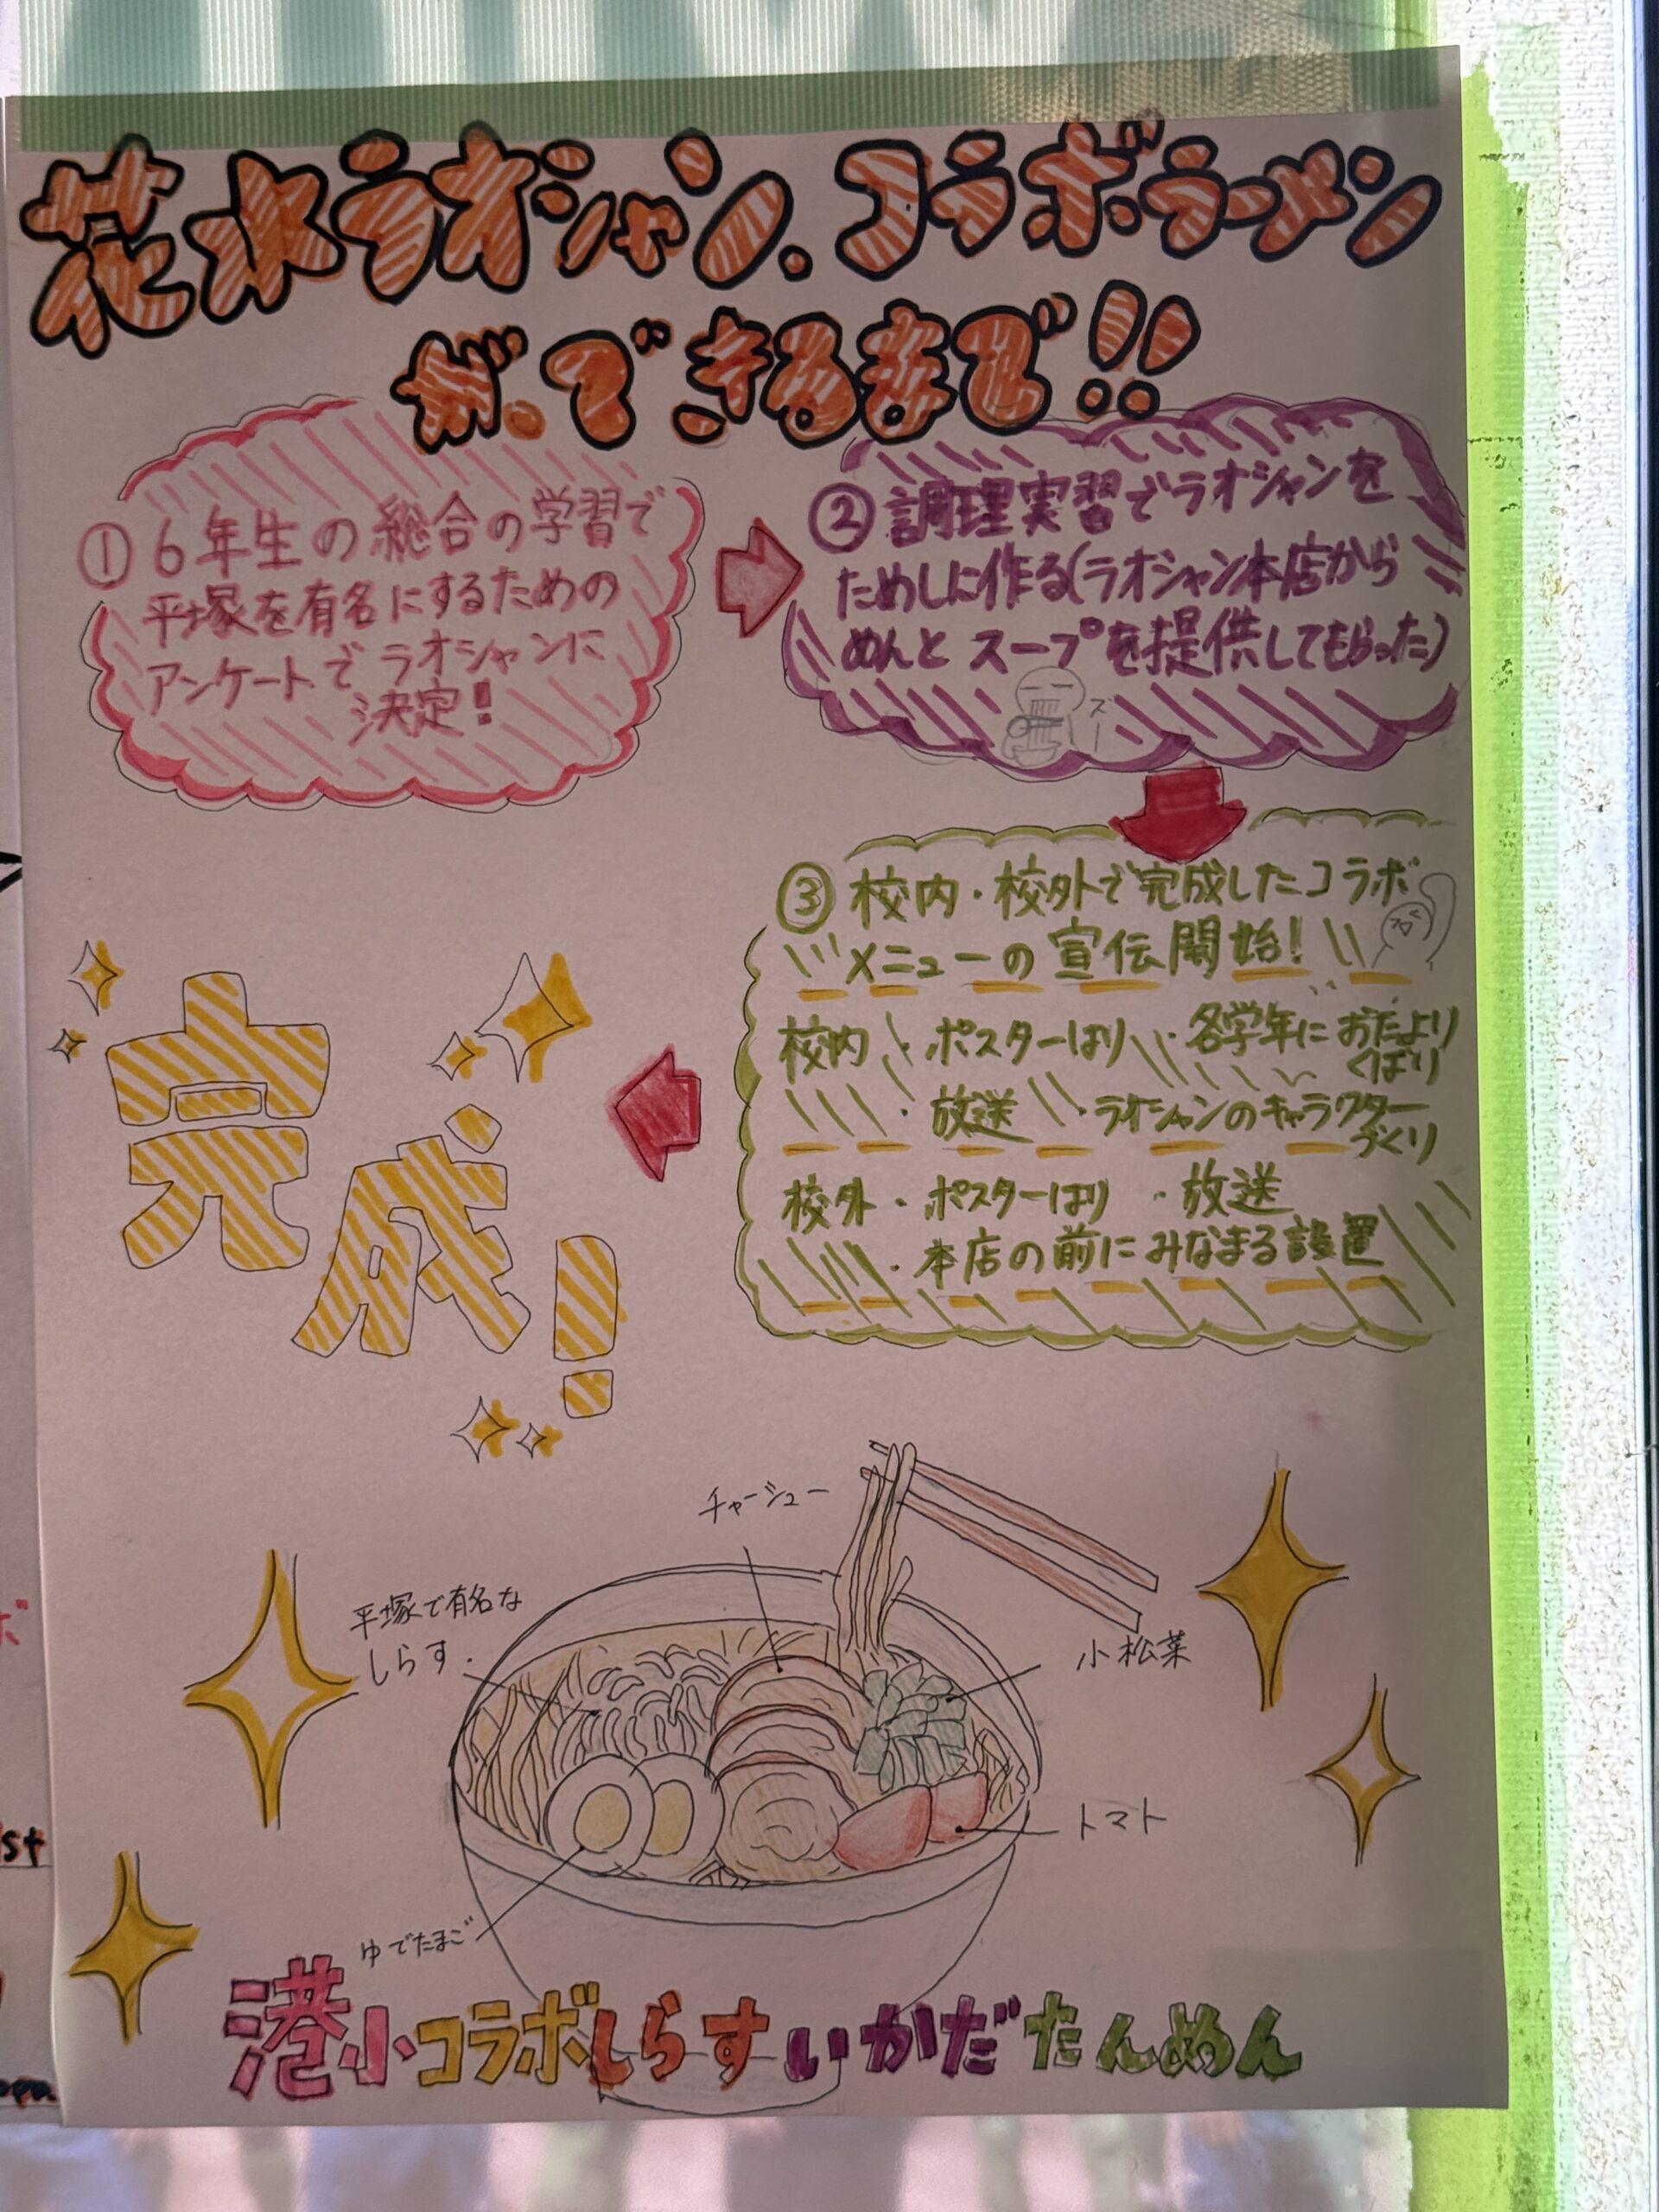 花水ラオシャン.コラボラーメン
ができるまで!!
① 6年生の総合の学習で
平塚を有名にするための
アンケートでラオシャンに
決定!
② 調理実習でラオシャンを
ためしに作る(ラオシャン本店から
めんとスープを提供してもらった)
ズー
③ 校内・校外で完成したコラボ
メニューの宣伝開始!
校内 ・ポスターはり ・各学年におたより
くばり
・放送 ・ラオシャンのキャラクター
づくり
校外・ポスターはり ・放送
・本店の前にみなまる設置
完成!
チャーシュー
平塚で有名な
しらす.
小松菜
トマト
ゆでたまご
港小コラボしらすいかだたんめん
st